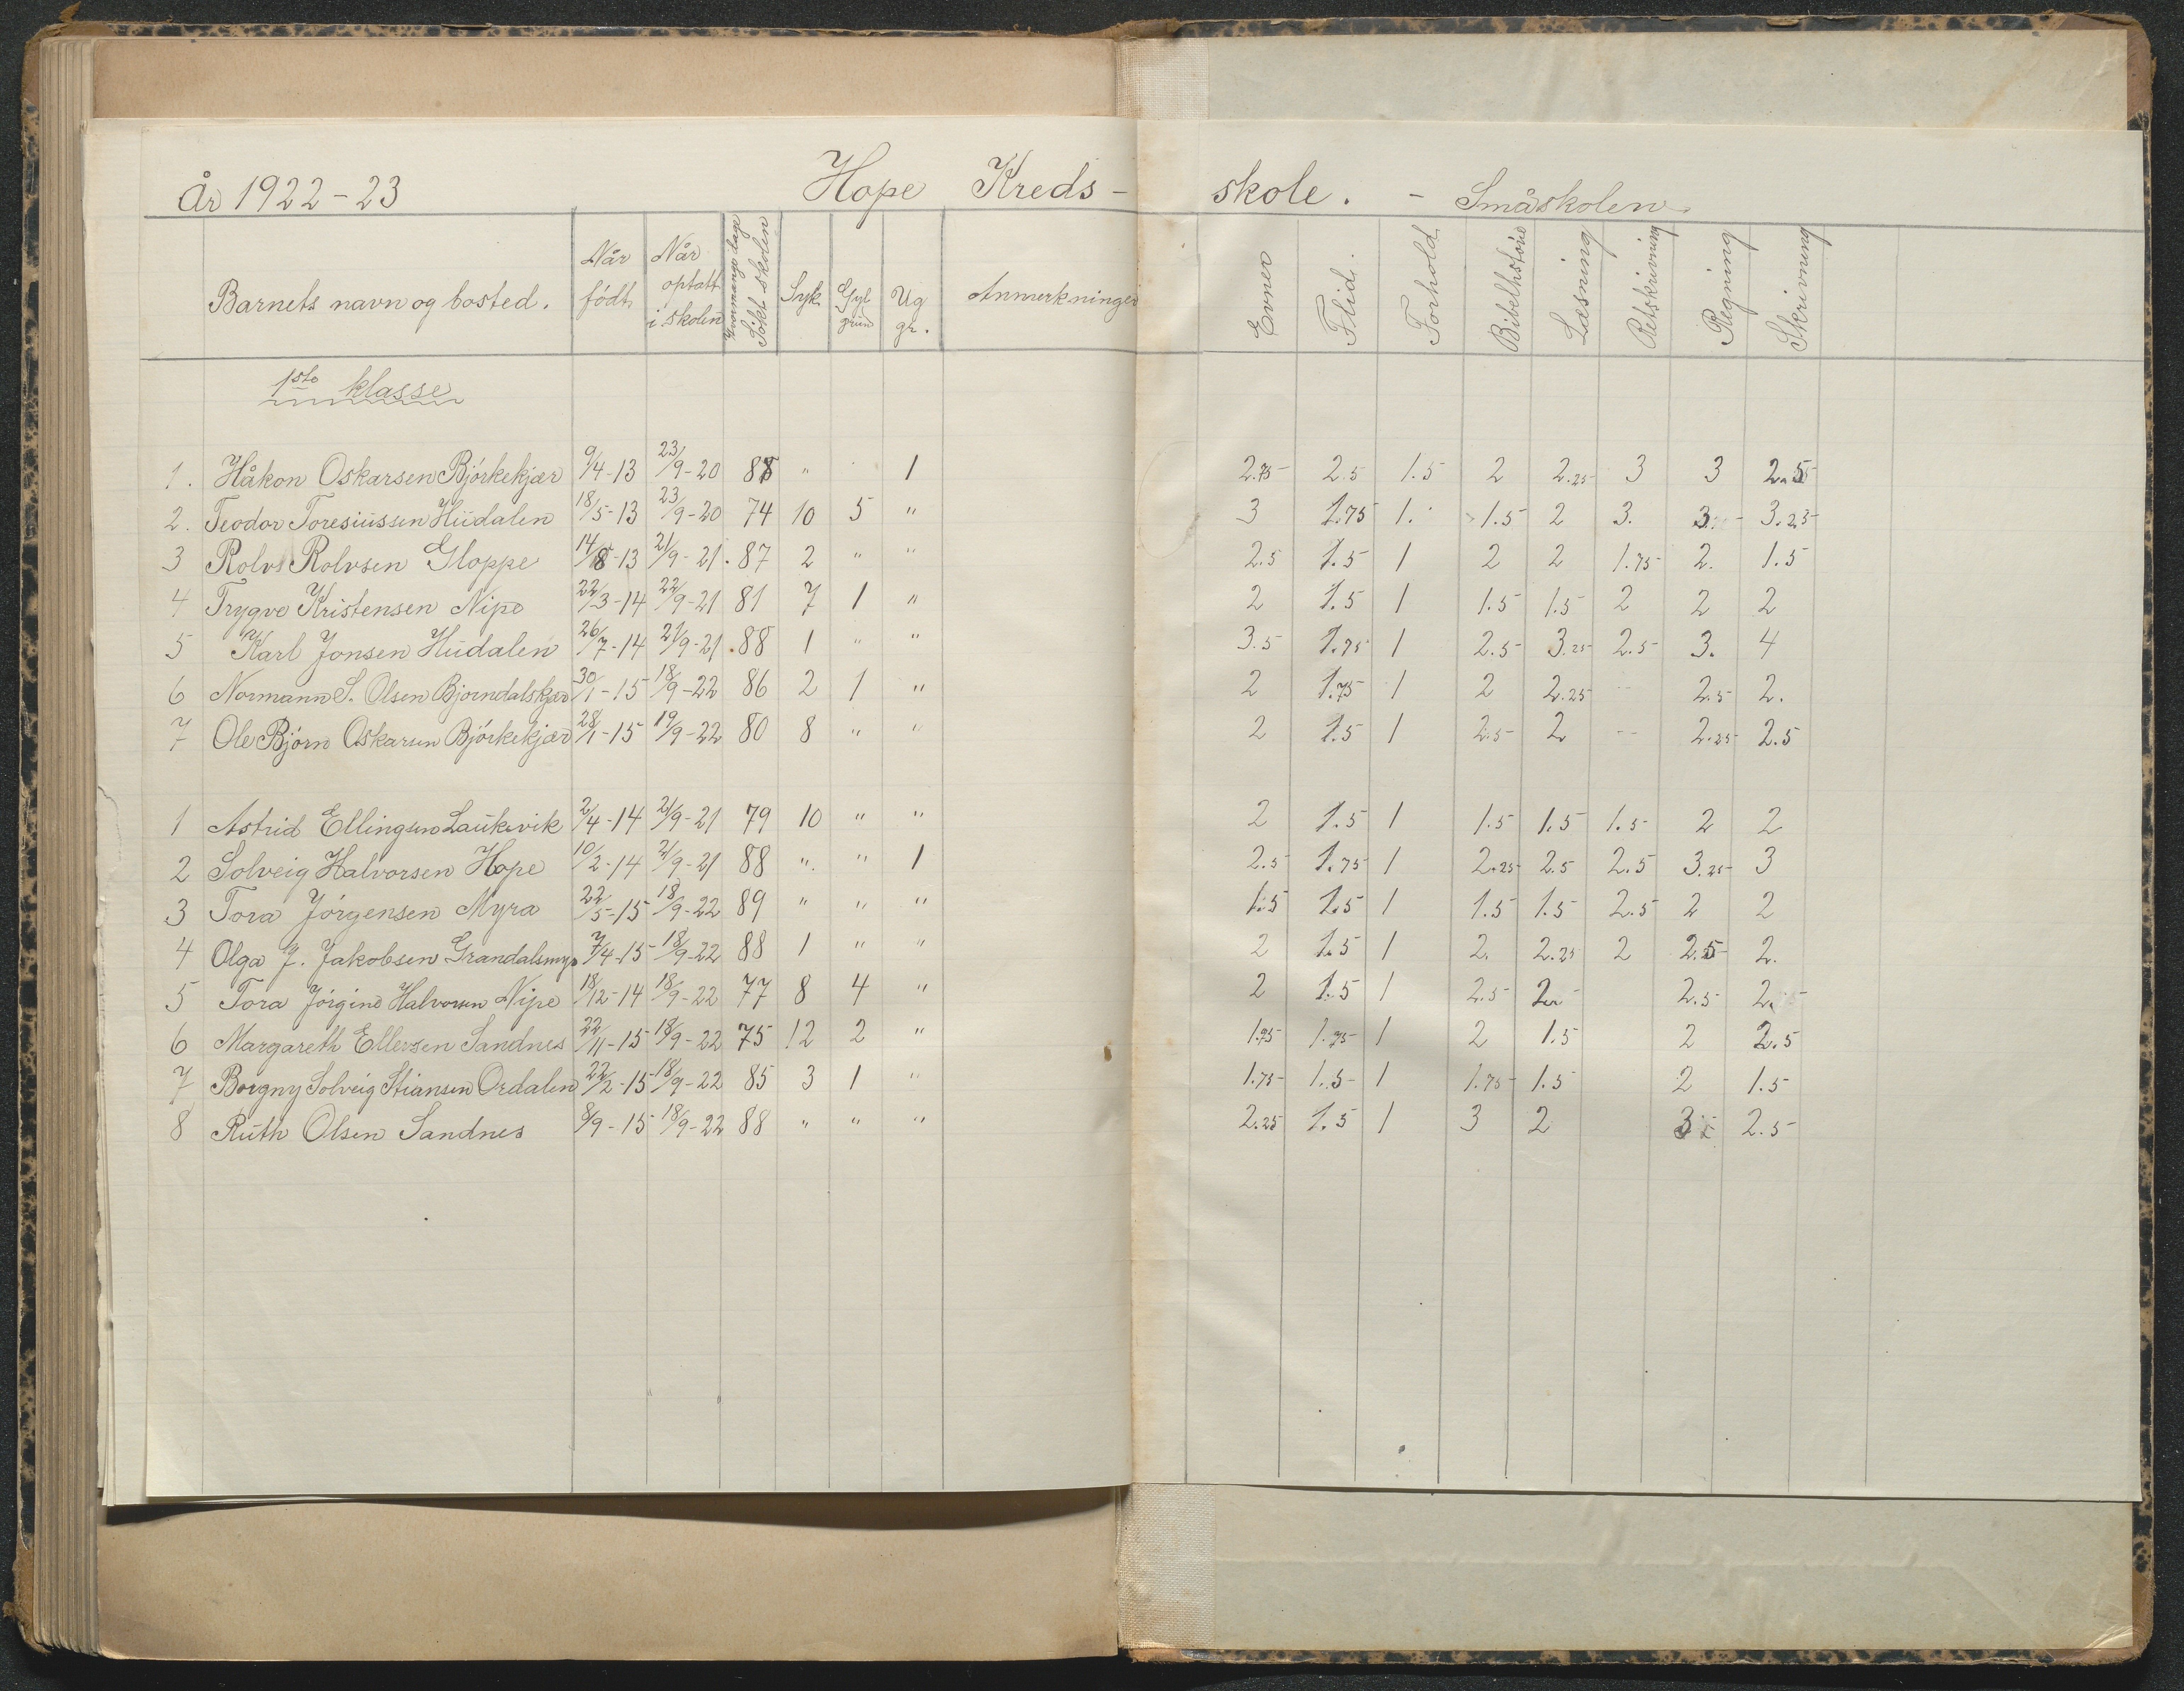 År 1922-23 Hope Kreds- skole. - Småskolen.
Barnets navn og bosted. Når født Når optatt i skolen Søkt skolen Syk. Gyl grund Ug gr. Anmerkninger Evner Flid. Forhold Bibelhistorie Læsning Retskrivning Regning Skrivning
1ste klasse
1. Håkon Oskarsen Bjørkekjær 9/4-13 23/9-20 88 " 1 2.75 2.5 1.5 2 2.25 3 3 2.5
2. Teodor Toresiussen Hudalen 18/5-13 23/9-20 74 10 5 " 3 1.75 1. 1.5 2 3. 3. 3.25
3 Rolv Rolvsen Gloppe 14/8-13 21/9-21. 87 2 " " 2.5 1.5 1 2 2 1.75 2. 1.5
4 Trygve Kristensen Nipe 22/3-14 22/9-21 81 7 1 " 2 1.5 1 1.5 1.5 2 2 2
5 Karl Jonsen Hudalen 26/7-14 21/9-21. 88 1 " " 3.5 1.75 1 2.5 3.25 2.5 3. 4
6 Normann S. Olsen Bjorndalskjær 30/1-15 18/9-22 86 2 1 " 2 1.75 1 2 2.25 -- 2.5 2.
7 Ole Bjørn Oskarsen Bjørkekjær 28/1-15 19/9-22 80 8 " " 2 1.5 1 2.5 2 -- 2.25 2.5
1 Astrid Ellingsen Laukevik 2/4-14 21/9-21 79 10 " " 2 1.5 1 1.5 1.5 1.5 2 2
2 Solveig Halvorsen Hope 10/2-14 21/9-21 88 " " 1 2.5 1.75 1 2.25 2.5 2.5 3.25 3
3 Tora Jørgensen Myra 22/5-15 18/9-22 89 " " " 1.5 1.5 1 1.5 1.5 2.5 2 2
4 Olga J. Jakobsen Grandalsmyr 7/4-15 18/9-22 88 1 " " 2 1.5 1 2. 2.25 2 2.5 2.
5 Tora Jørgine Halvorsen Nipe 18/12-14 18/9-22 77 8 4 " 2 1.5 1 2.5 2 2.5 2.
6 Margareth Ellersen Sandnes 22/11-15 18/9-22 75 12 2 " 1.75 1.75 1 2 1.5 2 2.5
7 Borgny Solveig Stiansen Ordalen 22/2-15 18/9-22 85 3 1 " 1.75 1.5 1 1.75 1.5 2 1.5
8 Ruth Olsen Sandnes 8/9-15 18/9-22 88 " " " 2.25 1.5 1 3 2 3 2.5